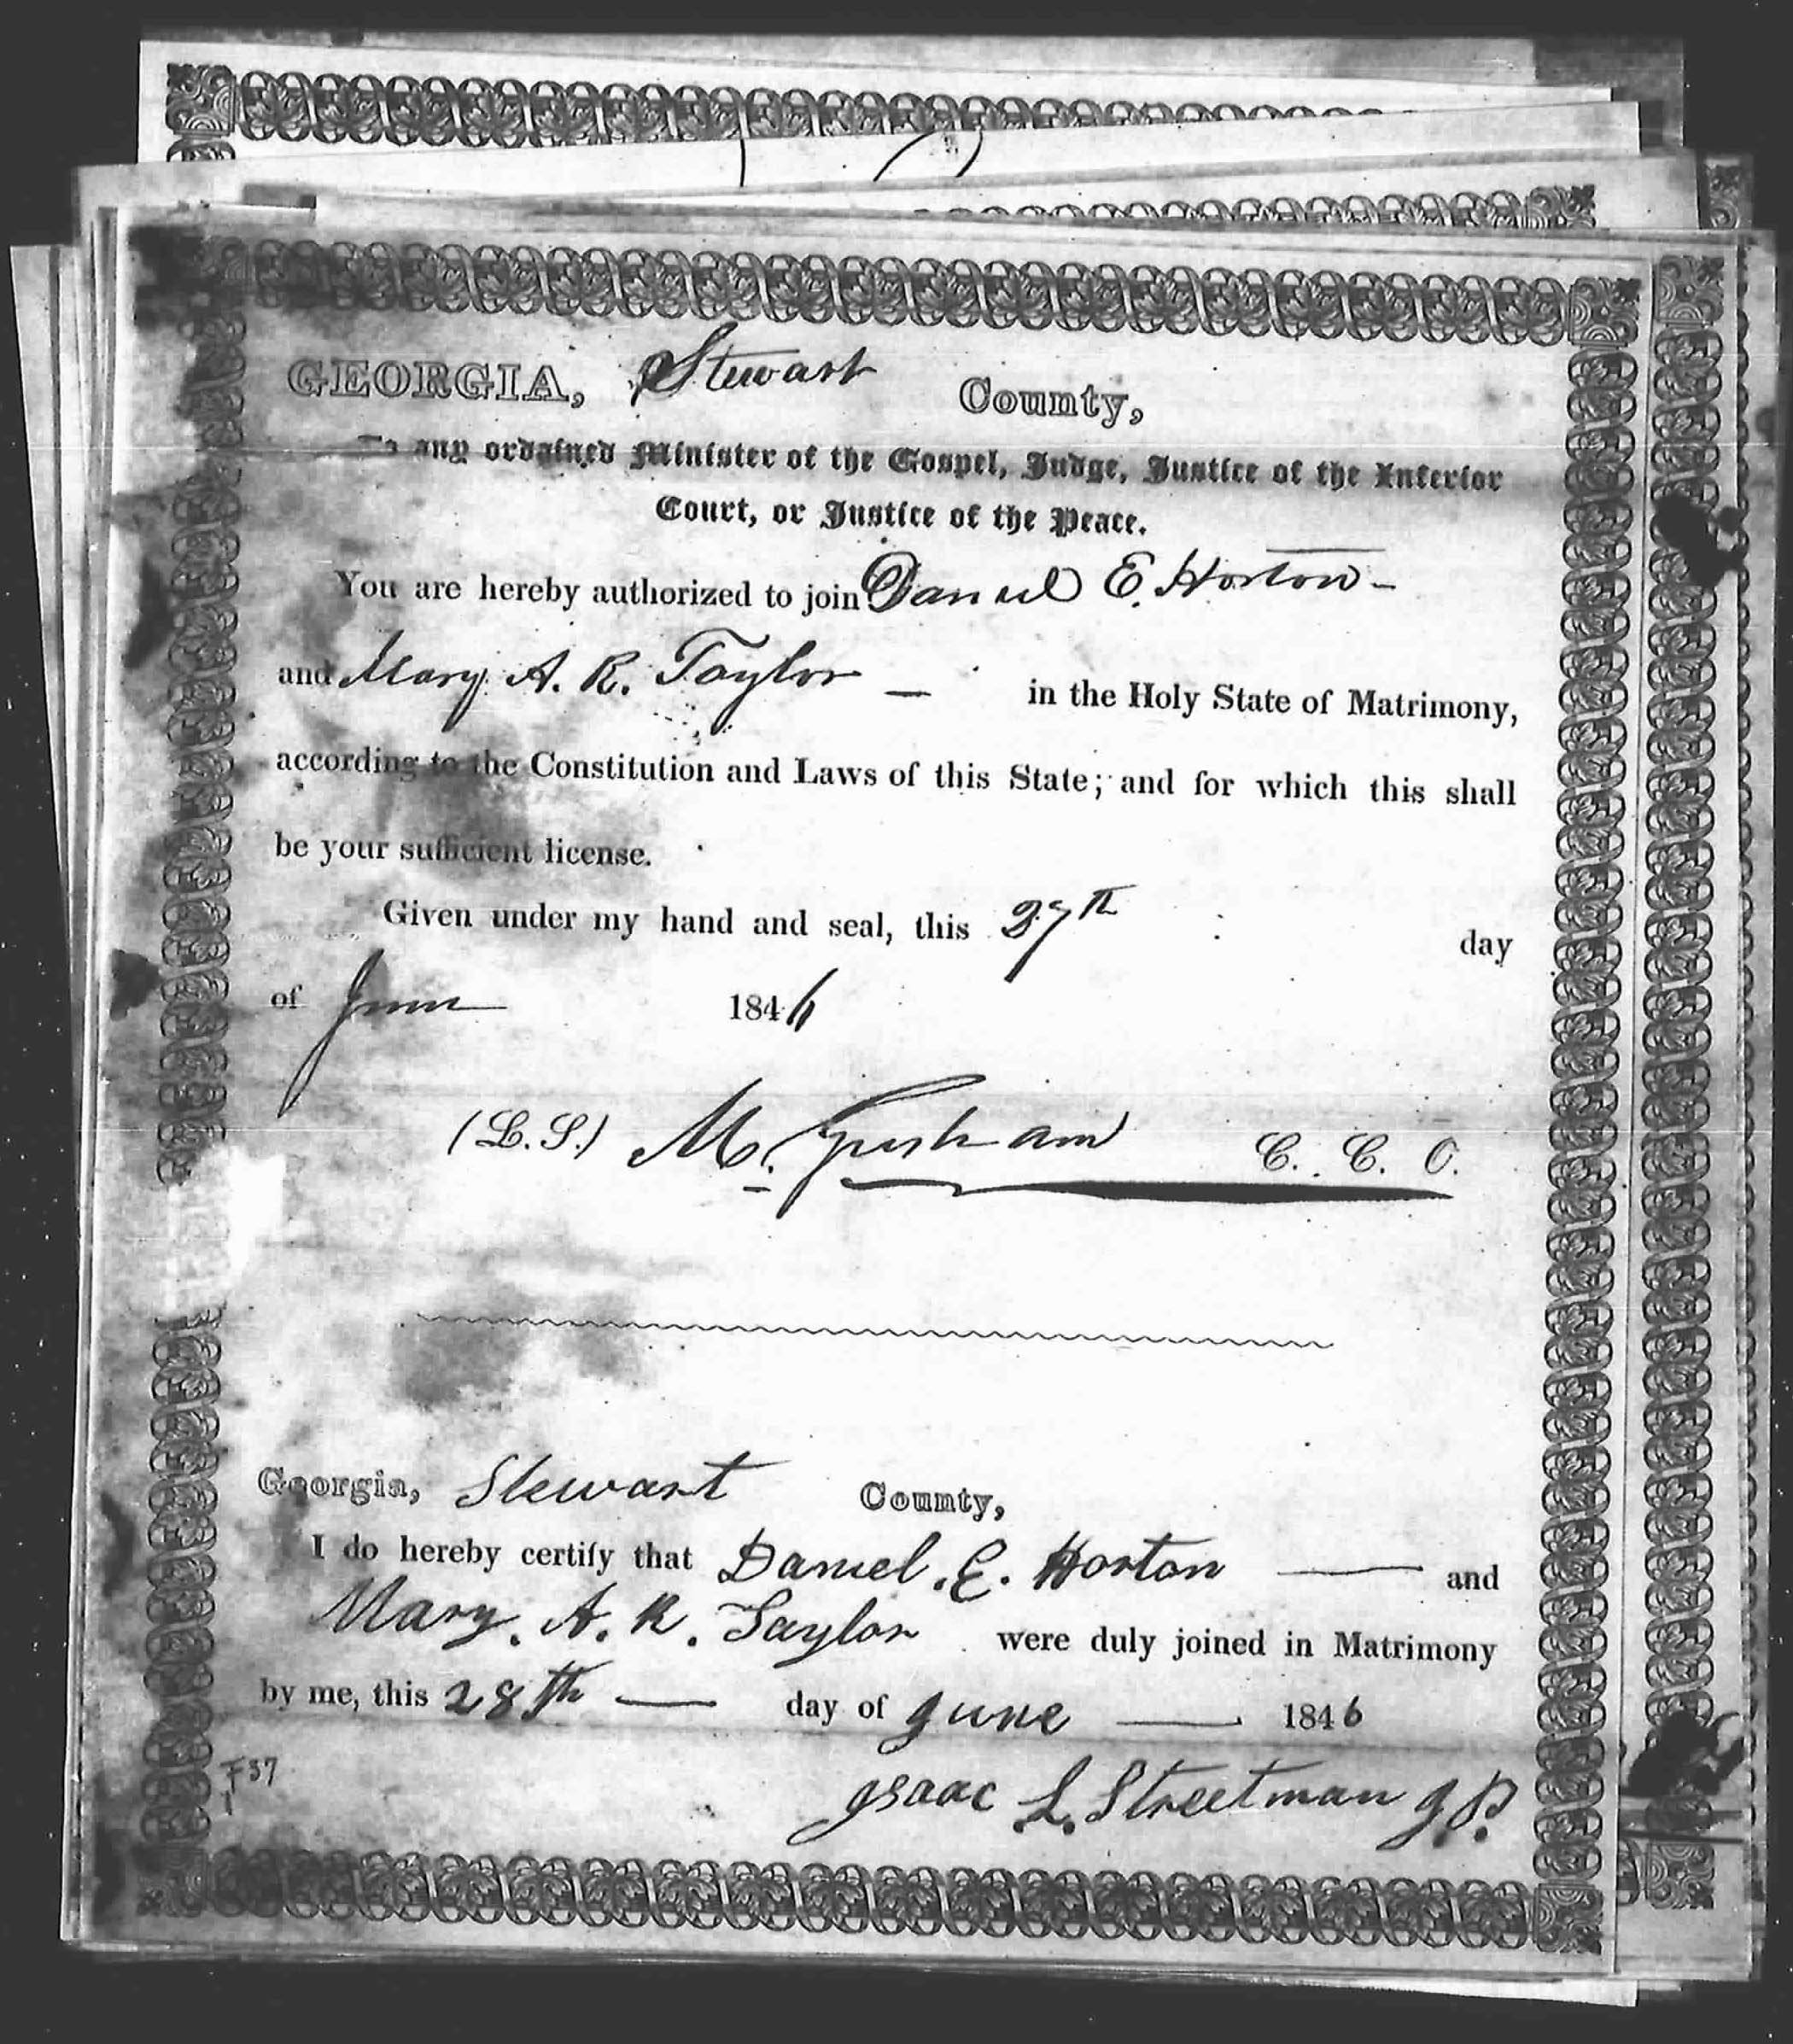 GEORGIA, Stewart County,
To any ordained Minister of the Gospel, Judge, Justice of the Inferior
Court, or Justice of the Peace.
You are hereby authorized to join Daniel E. Horton -
and Mary A. R. Taylor — in the Holy State of Matrimony,
according to the Constitution and Laws of this State; and for which this shall
be your sufficient license.
Given under my hand and seal, this 27th day
of June 1846
(L.S.) M. Gresham C. C. O.
Georgia, Stewart County,
I do hereby certify that Daniel. E. Horton — and
Mary. A. R. Taylor were duly joined in Matrimony
by me, this 28th — day of June — 1846
F37
1
Isaac L. Streetman J.P.